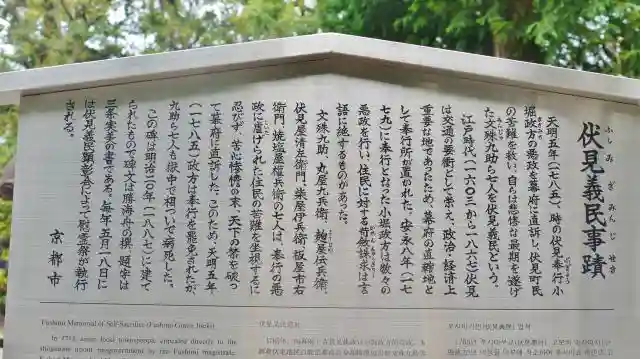 伏見義民事蹟
ふしみぎみんじせき
天明五年(一七八五)、時の伏見奉行小
堀政方の悪政を幕府に直訴し、伏見町民
の苦難を救い、自らは悲惨な最期を遂げ
た文殊九助ら七人を伏見義民という。
江戸時代(一六〇三から一八六七)伏見
は交通の要衝として栄え、政治・経済上
重要な地であったため、幕府の直轄地と
して奉行所が置かれた。安永八年(一七
七九)に奉行となった小堀政方は数々の
悪政を行い、住民に対する苛斂誅求は言
語に絶するものがあった。
文殊九助、丸屋九兵衛、麹屋伝兵衛、
伏見屋清左衛門、柴屋伊兵衛、板屋市右
衛門、焼塩屋権兵衛の七人は、奉行の悪
政に虐げられた住民の苦難を坐視するに
忍びず、苦心惨憺の末、天下の禁を破っ
て幕府に直訴した。このため、天明五年
(一七八五)政方は奉行を罷免されたが、
九助ら七人も獄中で相ついで病死した。
この碑は明治二〇年(一八八七)に建て
られたもので碑文は勝海舟の撰、題字は
三条実美の書である。毎年五月一八日に
は伏見義民顕彰会によって慰霊祭が執行
される。
京都市
Fushimi Memorial of Self-Sacrifice (Fushimi Gimin Jiseki)
In 1785 seven local townspeople appealing directly to the
shogunate upon misgovernment by the Fushimi magistrate,
伏见义民事迹